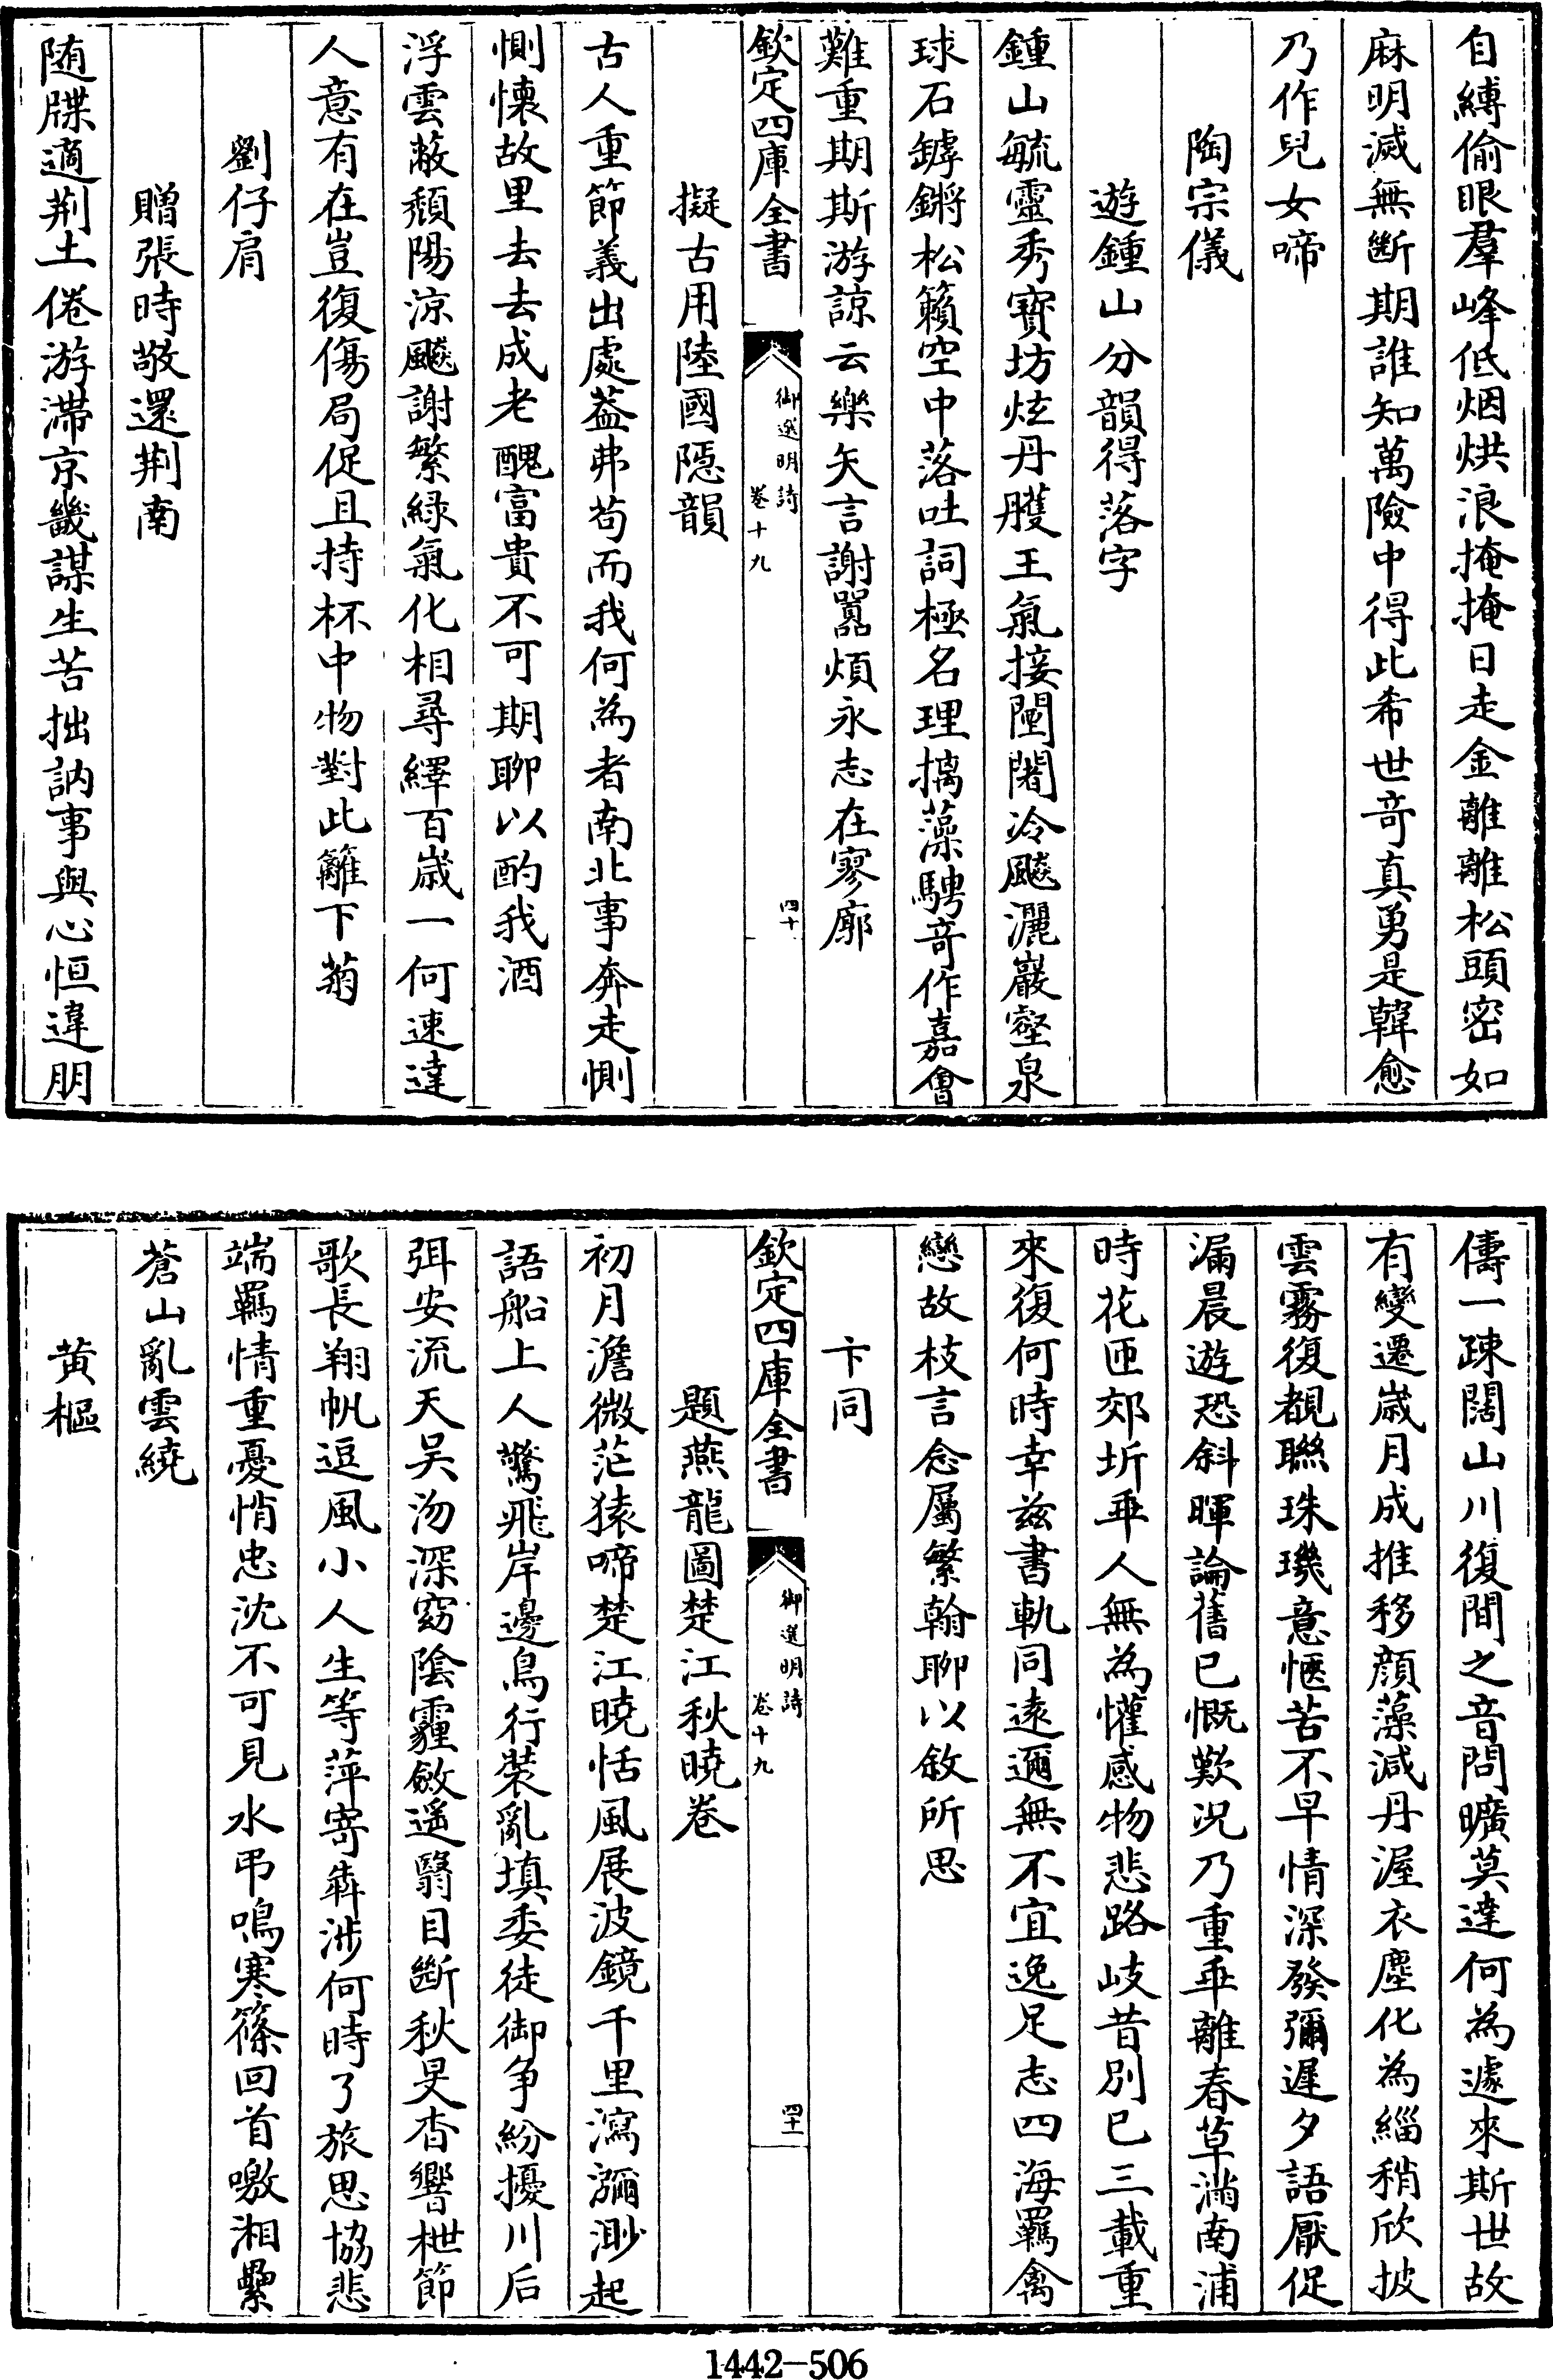 自縛偷眼羣峰低烟烘浪掩掩日走金離離松頭密如
麻明滅無斷期誰知萬險中得此希世竒真勇是韓愈
乃作兒女啼
陶宗儀
遊鍾山分韻得落字
鍾山毓靈秀寶坊炫丹雘王氣接閩闍冷飈灑巖壑泉
球石罅鏘松籟空中落吐詞極名理摛藻騁竒作嘉會
難重期斯游諒云樂矢言謝囂煩永志在寥廓
欽定四庫全書
御選明詩
卷十九
四十
擬古用陸國隱韻
古人重節義出處葢弗茍而我何為者南北事奔走惻
惻懷故里去去成老醜富貴不可期聊以酌我酒
浮雲蔽頽陽涼飈謝繁緑氣化相尋繹百歲一何速達
人意有在豈復傷局促且持杯中物對此籬下菊
劉仔肩
贈張時敬還荆南
随牒適荆土倦游滯京畿謀生苦拙訥事與心恒違朋
儔一疎闊山川復間之音問曠莫達何為遽來斯世故
有變遷歲月成推移顔藻減丹渥衣塵化為緇稍欣披
雲霧復覩聯珠璣意愜苦不早情深發彌遲夕語厭促
漏晨遊恐斜暉論舊已慨歎况乃重乖離春草滿南浦
時花匝郊圻乖人無為懽感物悲路岐昔别已三載重
來復何時幸兹書軌同遠邇無不宜逸足志四海羈禽
戀故枝言念屬繁翰聊以敘所思
卞同
題燕龍圖楚江秋曉卷
欽定四庫全書
御選明詩
卷十九
四十一
初月澹微茫猿啼楚江曉恬風展波鏡千里瀉瀰渺起
語船上人驚飛岸邊鳥行裝亂填委徒御争紛擾川后
弭安流天吳汤深窈陰霾斂遥翳目斷秋旻杳響枻節
歌長翔帆逗風小人生等萍寄犇涉何時了旅思協悲
端羈情重憂悄忠沈不可見水弔鳴寒篠回首噭湘纍
蒼山亂雲繞
黄樞
1442-506